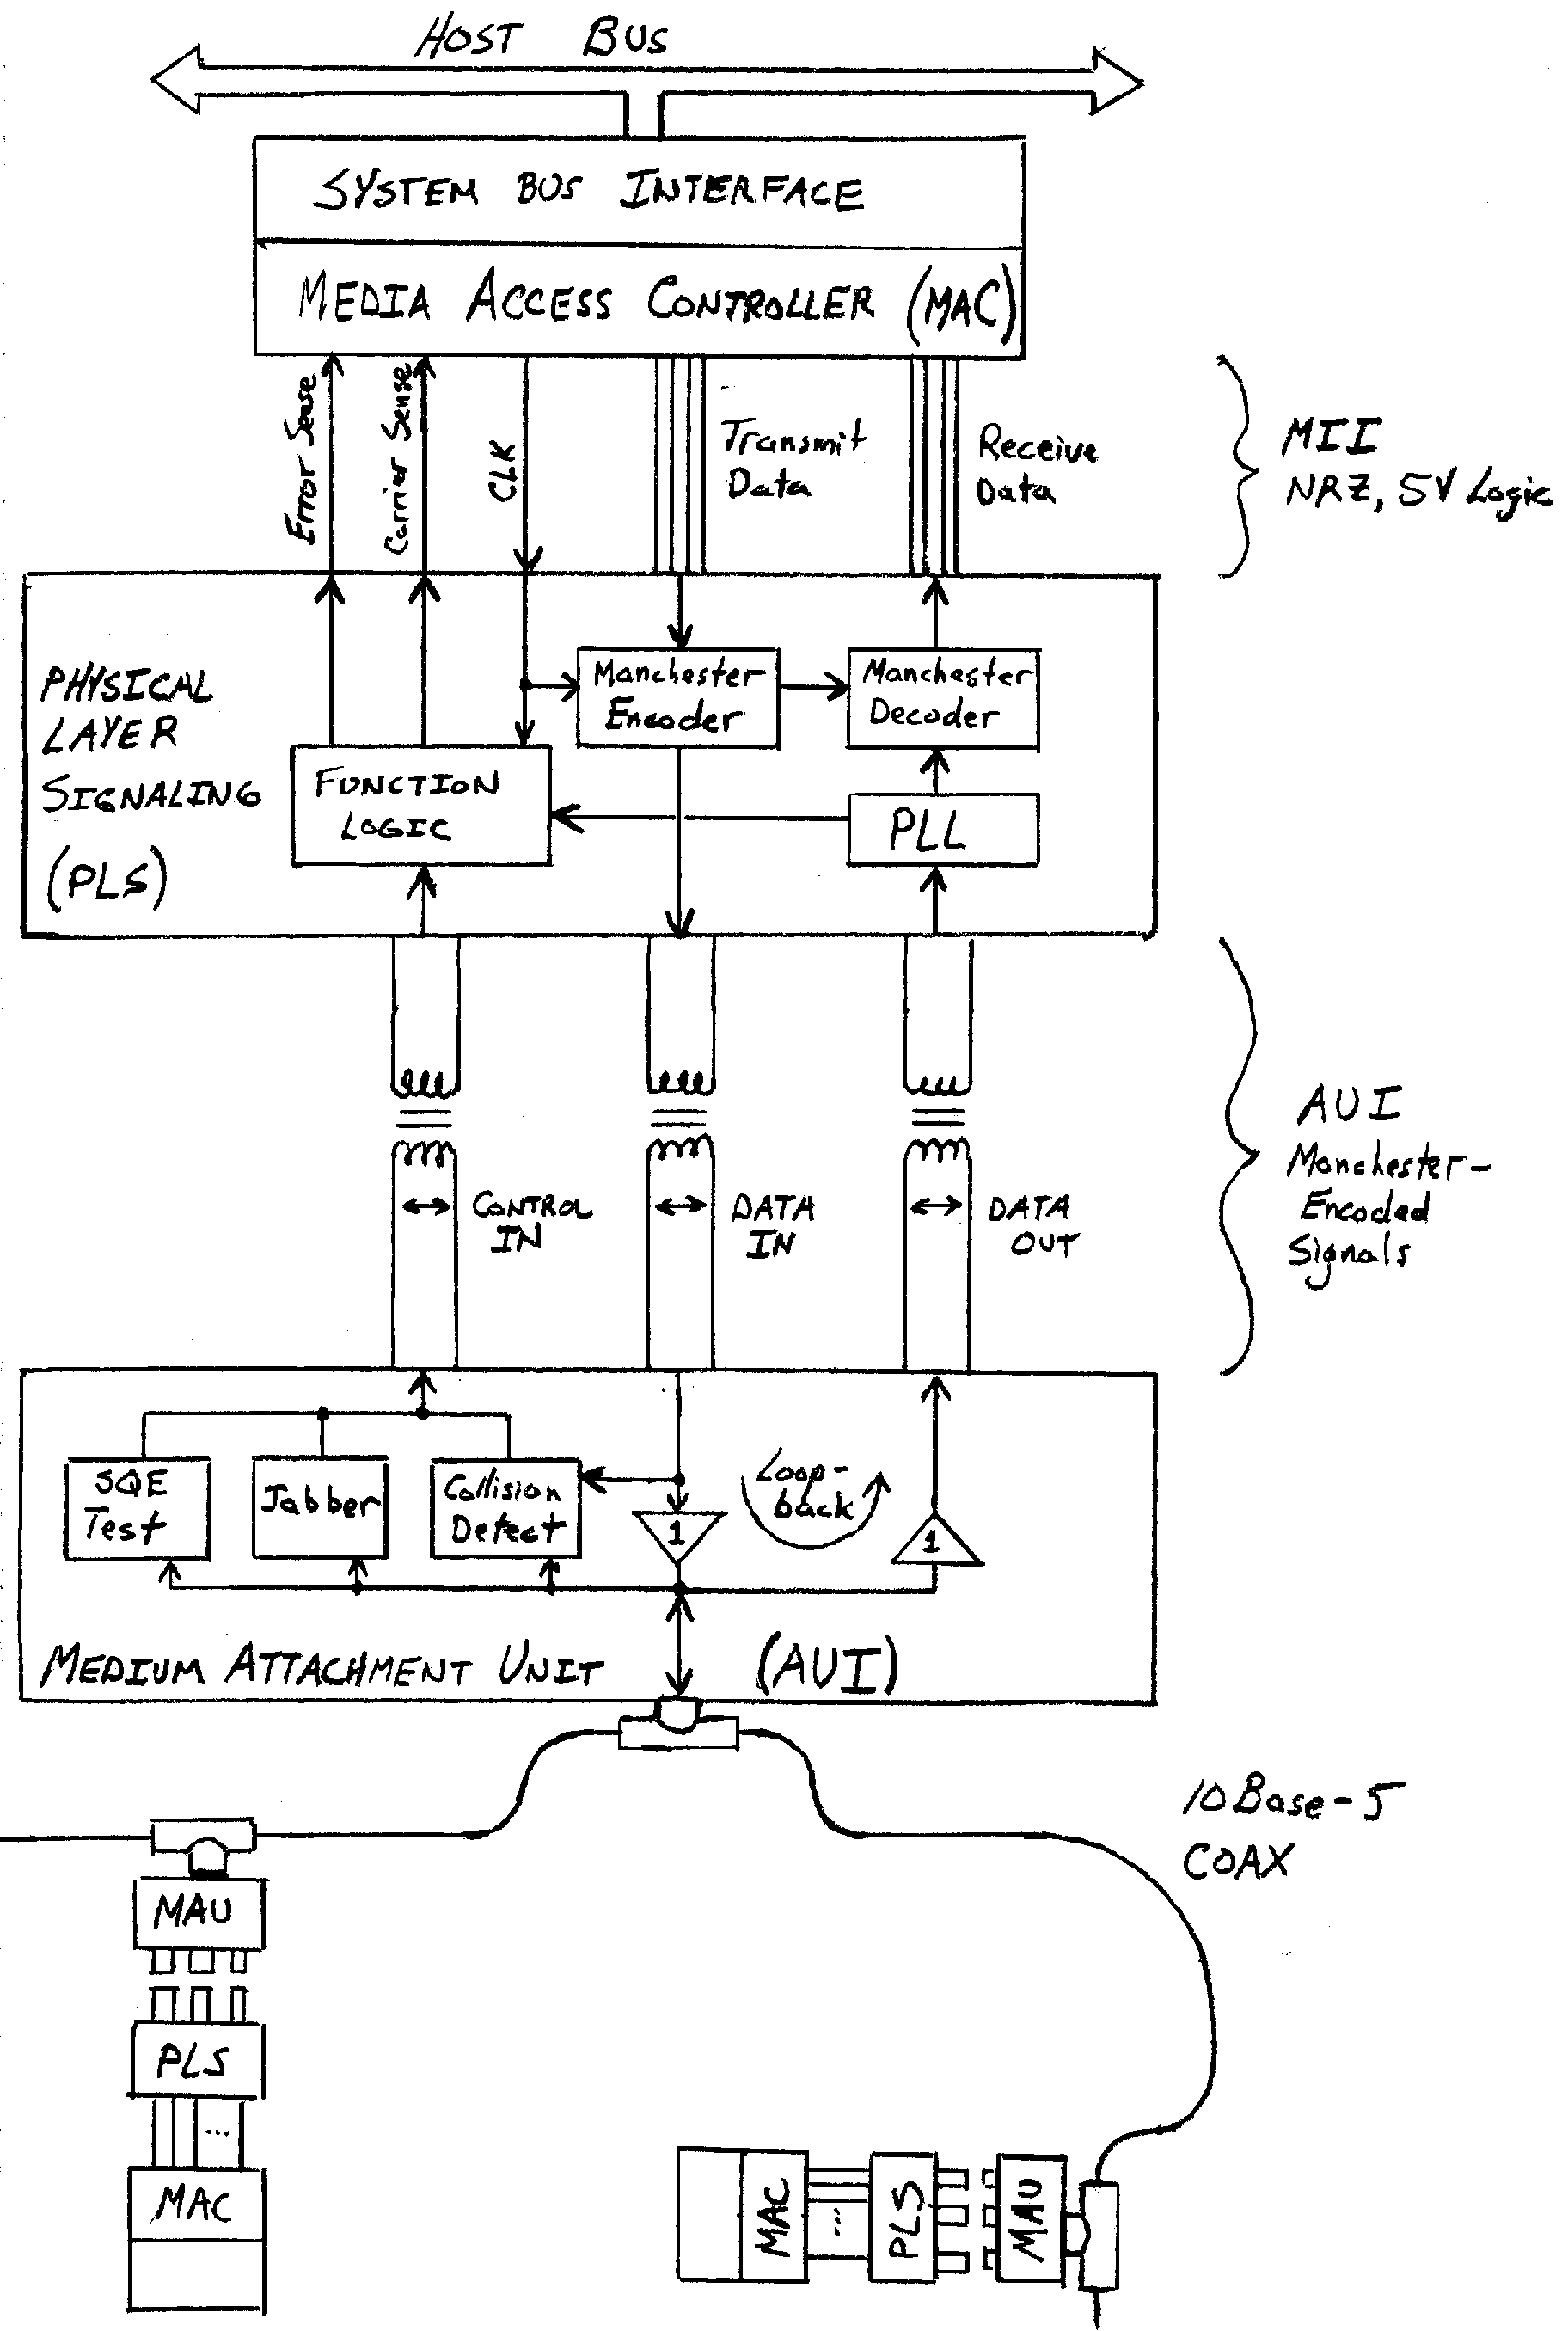 HOST BUS
SYSTEM BUS INTERFACE
MEDIA ACCESS CONTROLLER (MAC)
Error Sense
Carrier Sense
CLK
Transmit
Data
Receive
Data
MII
NRZ, 5V Logic
PHYSICAL
LAYER
SIGNALING
(PLS)
Manchester
Encoder
Manchester
Decoder
FUNCTION
LOGIC
PLL
CONTROL
IN
DATA
IN
DATA
OUT
AUI
Manchester-
Encoded
Signals
SQE
Test
Jabber
Collision
Detect
1
Loop-
back
1
MEDIUM ATTACHMENT UNIT (AUI)
10Base-5
COAX
MAU
PLS
...
MAC
MAC
...
PLS
MAU